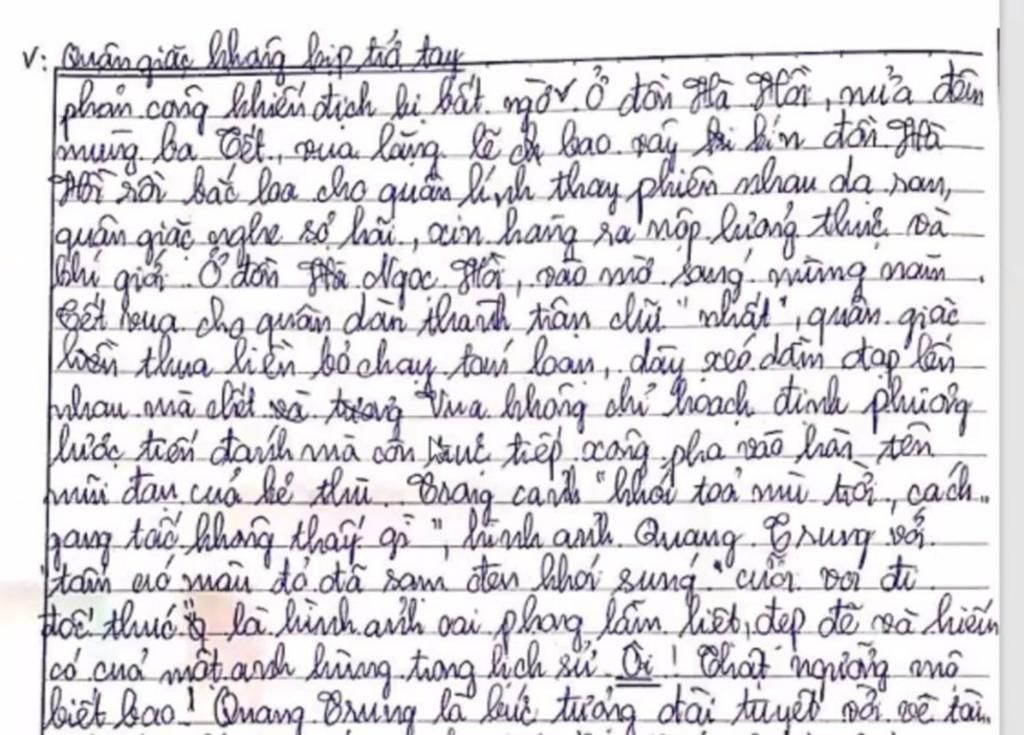 V: Quân giặc không kịp trở tay
phản công khiến địch bị bất ngờ ✓. Ở đồn Hà Hồi, nửa đêm
mùng ba Tết, vua lặng lẽ cho bao vây kín đồn Hà
Hồi rồi bắc loa cho quân lính thay phiên nhau dạ ran,
quân giặc nghe sợ hãi, xin hàng ra nộp lương thực và
khí giới. Ở đồn Hà Ngọc Hồi, vào mờ sáng mùng năm
Tết vua cho quân dàn thành trận chữ "nhất", quân giặc
liền thua liền bỏ chạy tán loạn, dày xéo dẫm đạp lên
nhau mà chết và Vua không chỉ hoạch định phương
lược tiến đánh mà còn trực tiếp xông pha vào hòn tên
mũi đạn của kẻ thù. Trong cảnh "khói toả mù trời, cách
gang tấc không thấy gì", hình ảnh Quang Trung với
"tấm áo màu đỏ đã sạm đen khói súng" cưỡi voi đi
đốc thúc là hình ảnh oai phong lẫm liệt, đẹp đẽ và hiếm
có của một anh hùng trong lịch sử. Ôi! Thật ngưỡng mộ
biết bao! Quang Trung là bức tượng đài tuyệt vời về tài